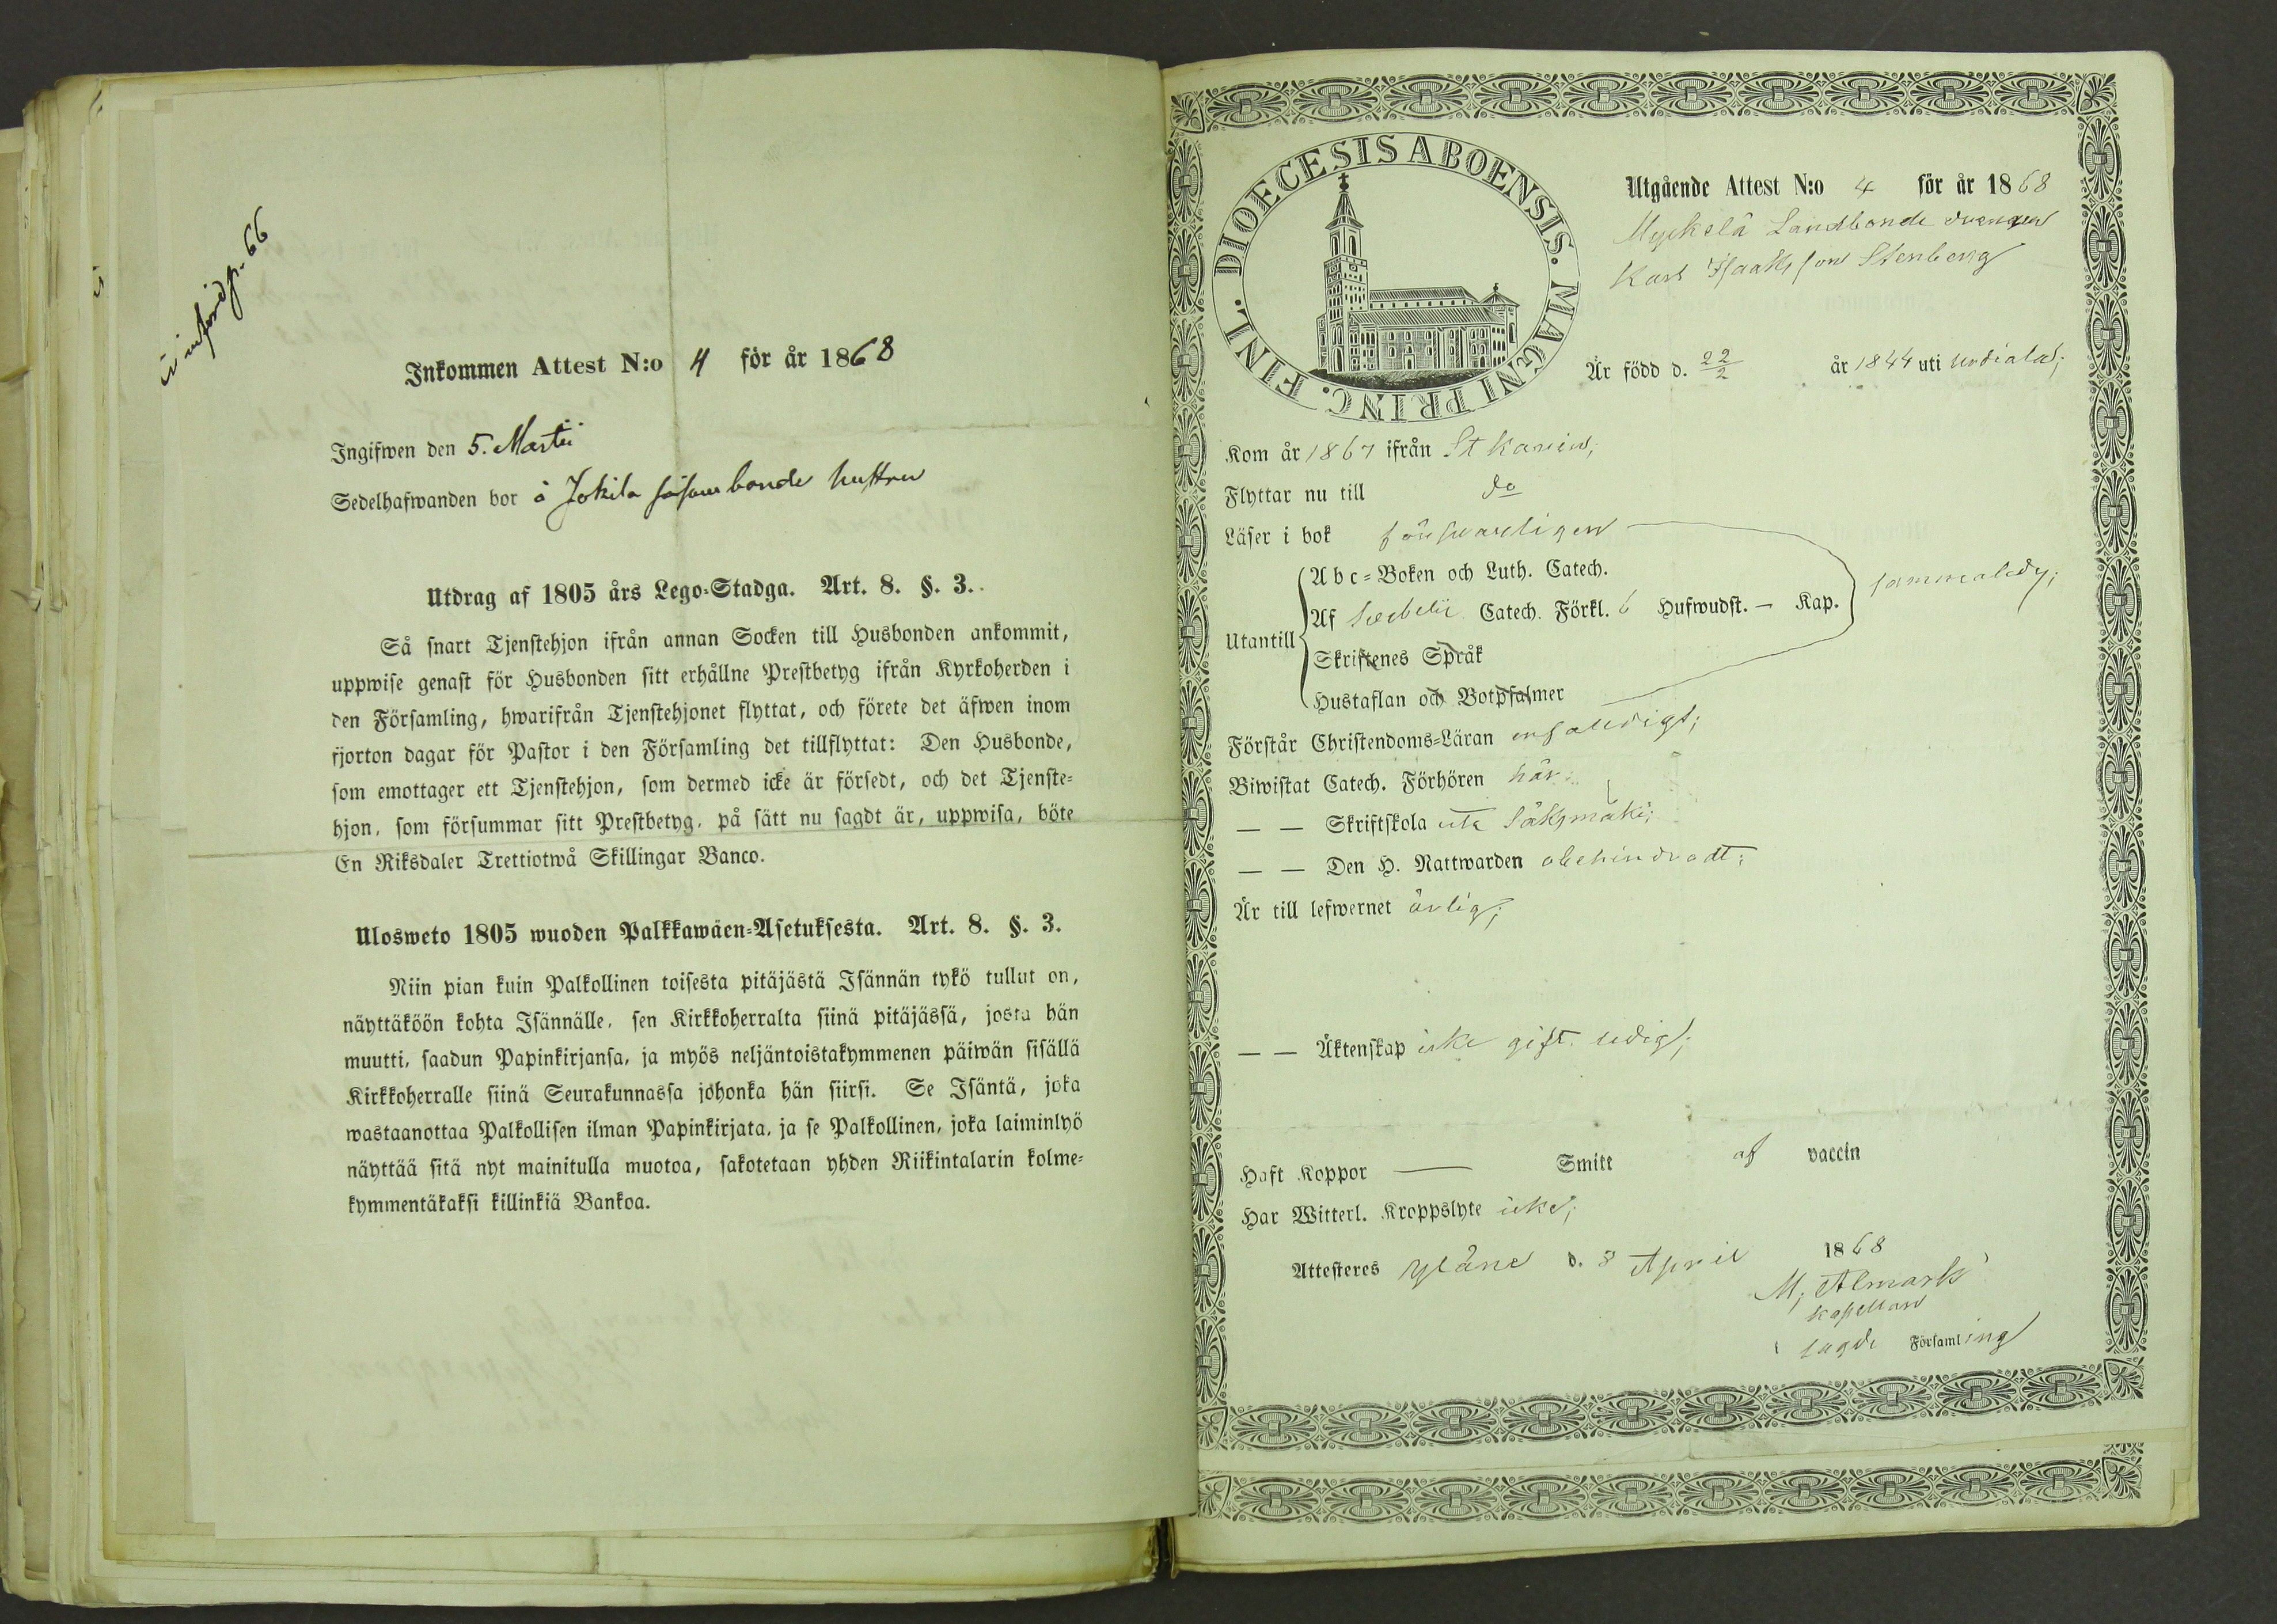 p. 66
Inkommen Attest N:o 4 för år 1868
Ingifwen den 5. Martii
Sedelhafwanden bor å Jokila bonde
Utdrag af 1805 års Lego-Stadga. Art. 8. §. 3.
Så snart Tjenstehjon ifrån annan Socken till Husbonden ankommit,
uppwise genast för Husbonden sitt erhållne Prestbetyg ifrån Kyrkoherden i
den Församling, hwarifrån Tjenstehjonet flyttat, och förete det äfwen inom
fjorton dagar för Pastor i den Församling det tillflyttat: Den Husbonde,
som emottager ett Tjenstehjon, som dermed icke är försedt, och det Tjenste-
hjon, som försummar sitt Prestbetyg, på sätt nu sagdt är, uppwisa, böte
En Riksdaler Trettiotwå Skillingar Banco.
Ulosweto 1805 wuoden Palkkawäen-Asetuksesta. Art. 8. §. 3.
Niin pian kuin Palkollinen toisesta pitäjästä Isännän tykö tullut on,
näyttäköön kohta Isännälle, sen Kirkkoherralta siinä pitäjässä, josta hän
muutti, saadun Papinkirjansa, ja myös neljäntoistakymmenen päiwän sisällä
Kirkkoherralle siinä Seurakunnassa johonka hän siirsi. Se Isäntä, joka
wastaanottaa Palkollisen ilman Papinkirjata, ja se Palkollinen, joka laiminlyö
näyttää sitä nyt mainitulla muotoa, sakotetaan yhden Riikintalarin kolme-
kymmentäkaksi killinkiä Bankoa.
DIOECESIS ABOENSIS. MAGNI PRINC. FINL.
Utgående Attest N:o 4 för år 1868
Myckelä Landbonde drengen
Karl Isaaksson Stenberg
Är född d. 22/2 år 1844 uti Urdiala;
Kom år 1867 ifrån St Karins;
Flyttar nu till do
Läser i bok försvarligen
Utantill
Abc-Boken och Luth. Catech.
Af Svebelii Catech. Förkl. 6 Hufwudst. — Kap.
Skriftenes Språk
Hustaflan och Botpsalmer
sammaledes;
Förstår Christendoms-Läran enfaldigt;
Biwistat Catech. Förhören här;
— — Skriftskola uti Säkymäki;
— — Den H. Nattwarden obehindradt;
Är till lefwernet ärlig;
— — Äktenskap icke gift. ledig;
Haft Koppor — Smitt af vaccin
Har Witterl. Kroppslyte icke;
Attesteres Yläne d. 3 April 1868
M. Almark
kapellan
i sagde Församling